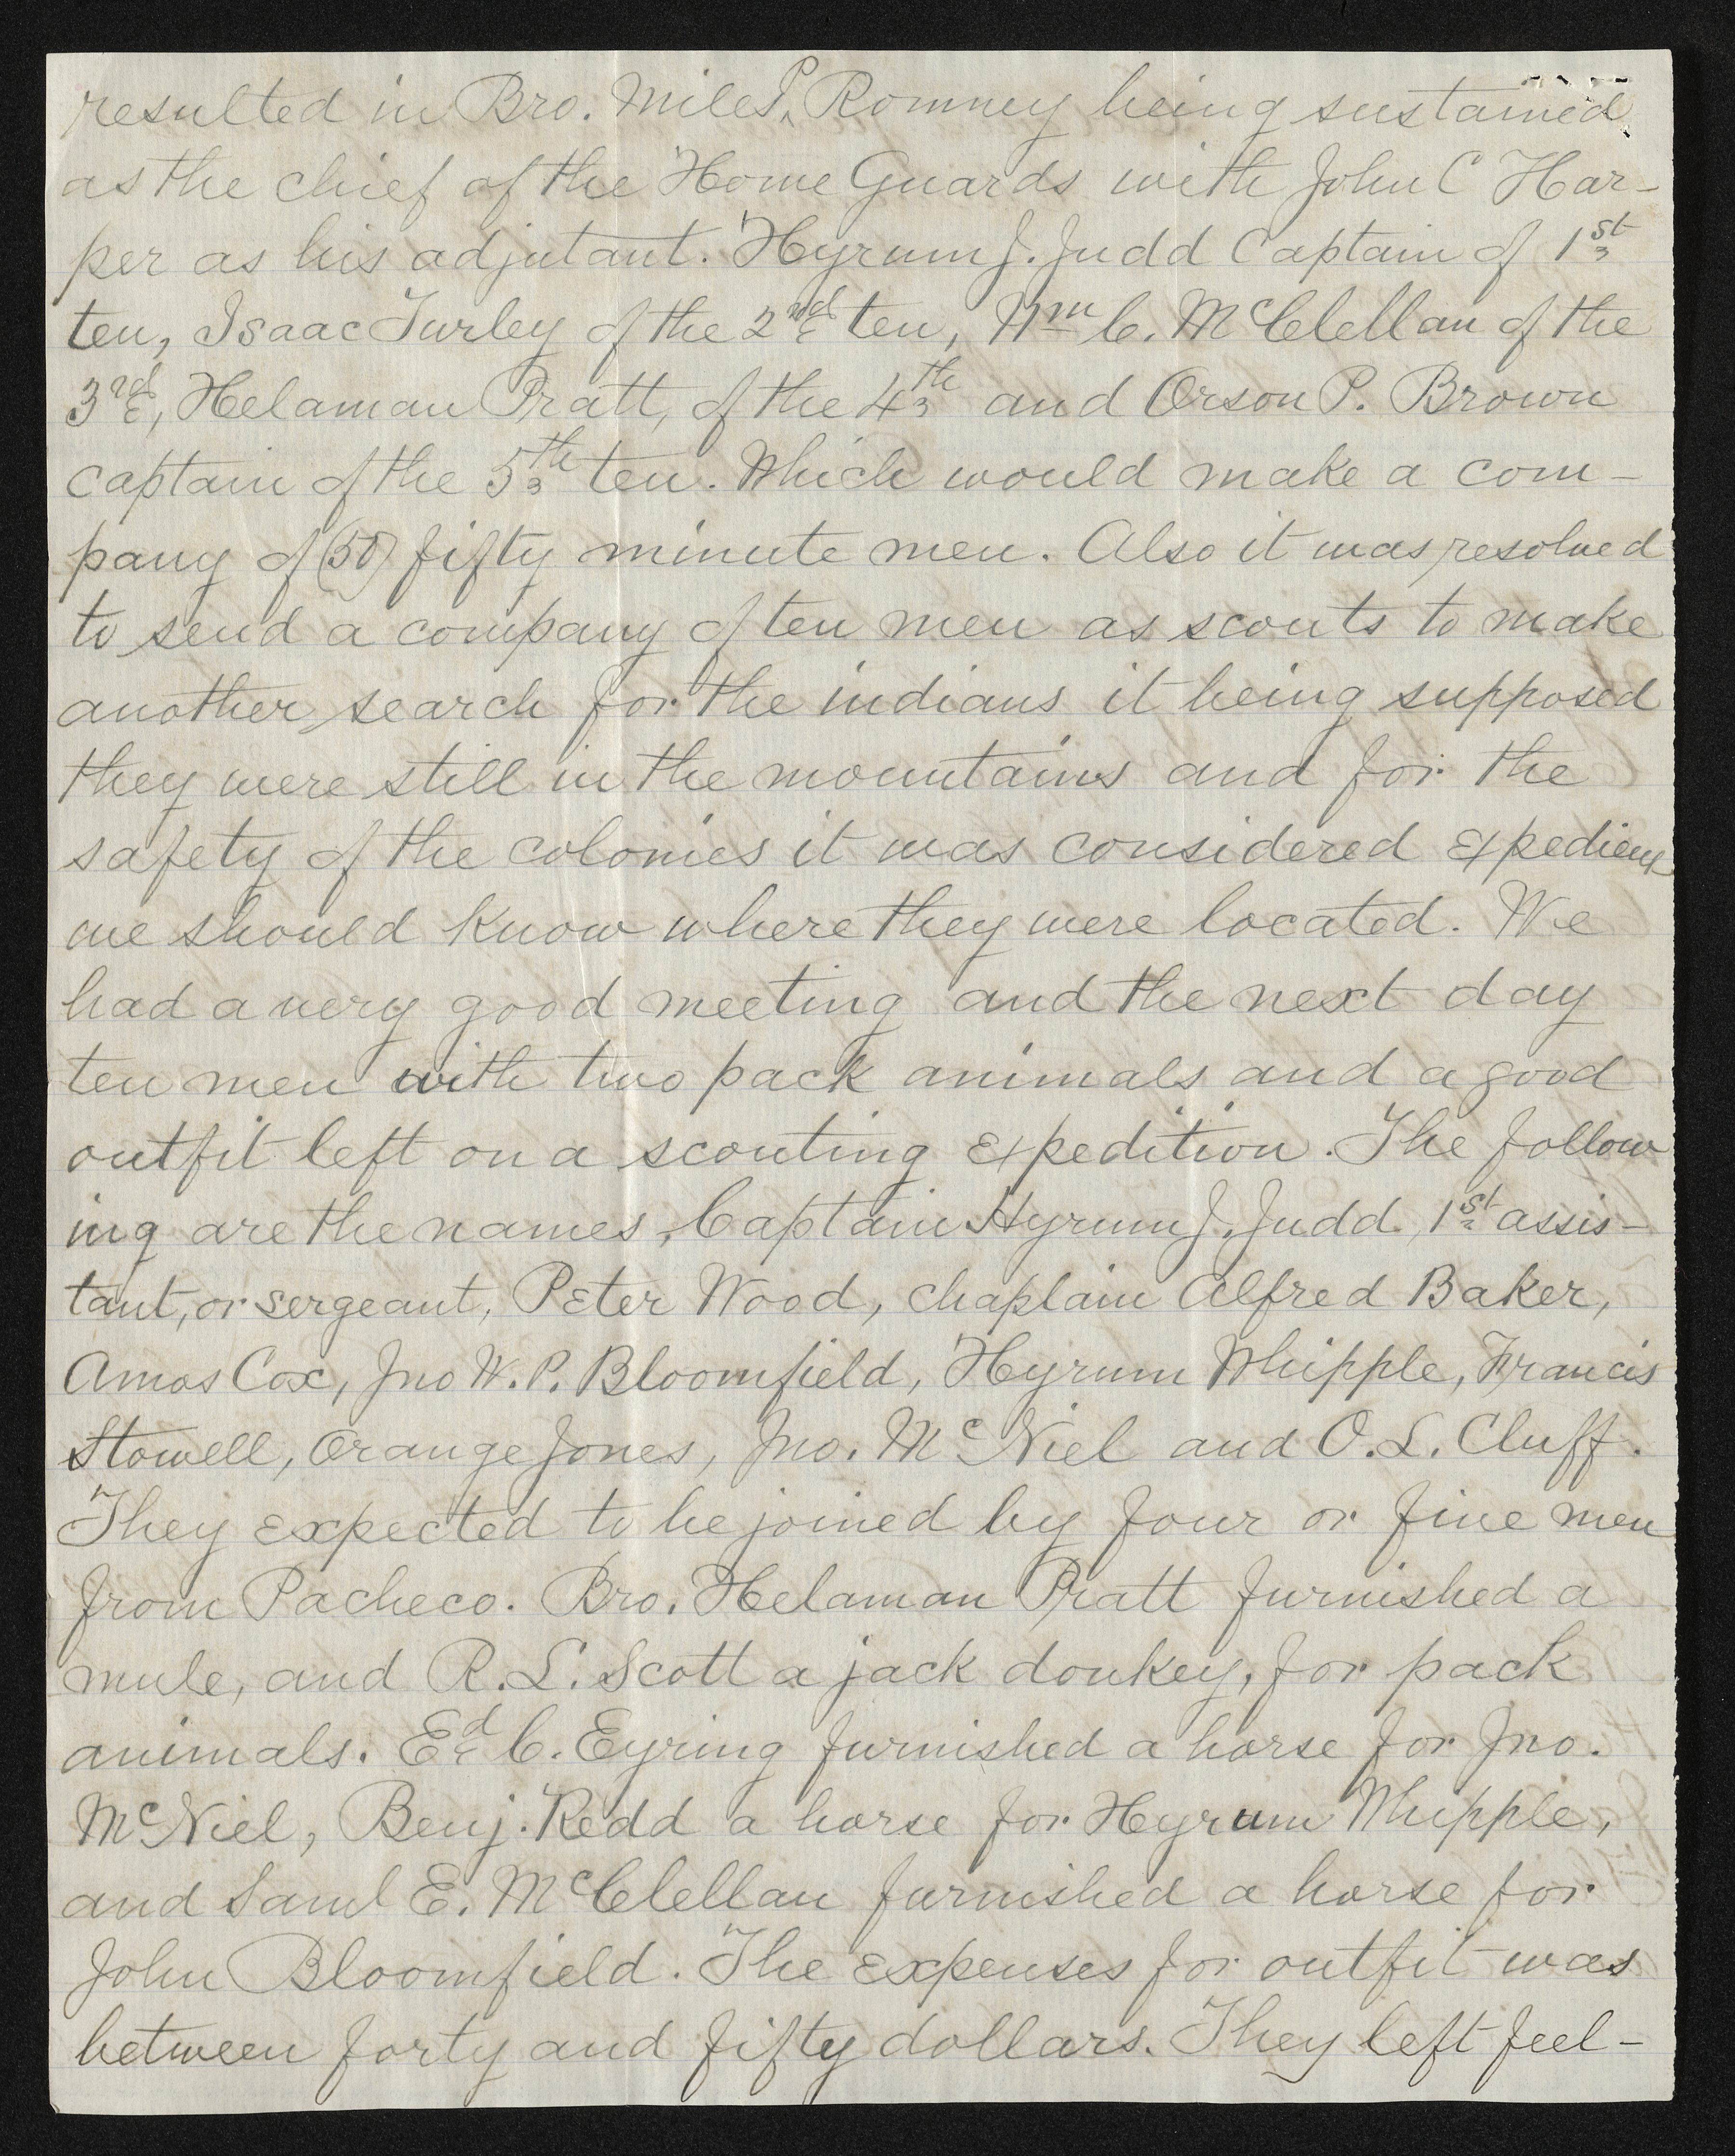 resulted in Bro. Miles P. Romney being sustained
as the chief of the Home Guards with John C Har-
per as his adjutant. Hyrum J. Judd Captain of 1st
ten, Isaac Turley of the 2nd ten, Wm C. McClellan of the
3rd, Helaman Pratt, of the 4th and Orson P. Brown
captain of the 5th ten. Which would make a com-
pany of (50) fifty minute men. Also it was resolved
to send a company of ten men as scouts to make
another search for the indians it being supposed
they were still in the mountains and for the
safety of the colonies it was considered expedient
we should know where they were located. We
had a very good meeting and the next day
ten men with two pack animals and a good
outfit left on a scouting expedition. The follow
ing are the names, Captain Hyrum J. Judd, 1st assis-
tant, or sergeant, Peter Wood, chaplain Alfred Baker,
Amos Cox, Jno W. P. Bloomfield, Hyrum Whipple, Francis
Stowell, Orange Jones, Jno. McNiel and O. L. Cluff.
They expected to be joined by four or five men
from Pacheco. Bro. Helaman Pratt furnished a
mule, and R. L. Scott a jack donkey, for pack
animals. Ed C. Eyring furnished a horse for Jno.
McNiel, Benj. Redd a horse for Hyrum Whipple,
and Saml E. McClellan furnished a horse for
John Bloomfield. The expenses for outfit was
between forty and fifty dollars. They left feel-